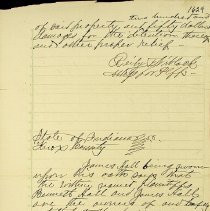 1629
two hundred and
of said property, and fifty dollars
damages for the detention thereof
and other proper relief.
Atty for Plffs
State of Indiana
Knox County
James Hall being sworn
upon his oath says that
the within named plaintiffs
Bennett Hall and James Hall
are the owners of and